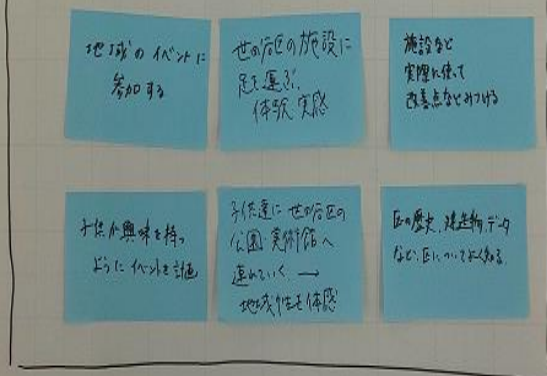 地域のイベントに
参加する
世田谷区の施設に
足を運ぶ、
体験 実感
施設など
実際に使って
改善点などみつける
子供が興味を持つ
ようにイベントを計画
子供達に世田谷区の
公園 美術館へ
連れていく →
地域性を体感
区の歴史、建造物、データ
など、区についてよく知る